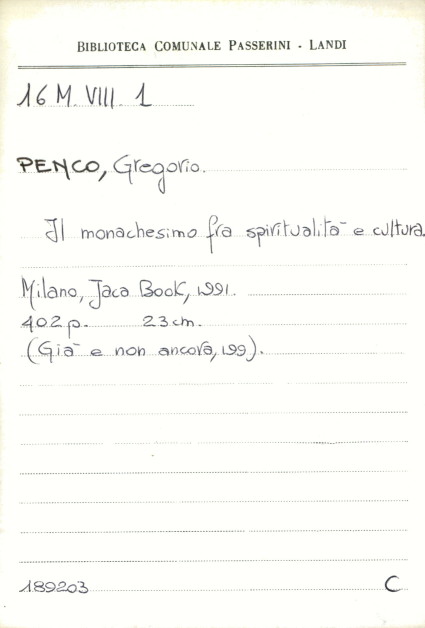 BIBLIOTECA COMUNALE PASSERINI - LANDI
16 M. VIII. 1
PENCO, Gregorio.
Il monachesimo fra spiritualità e cultura.
Milano, Jaca Book, 1991.
402 p. 23 cm.
(Già e non ancora, 199).
189203 C